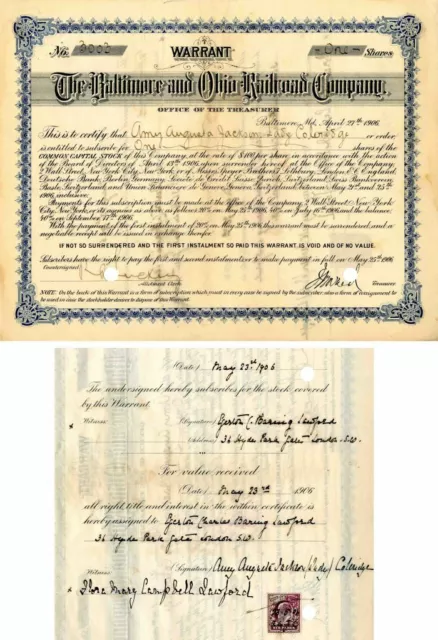 No. 3003
WARRANT
One Shares
The Baltimore and Ohio Railroad Company.
OFFICE OF THE TREASURER
Baltimore, Md., April 27th 1906.
This is to certify that Amy Augusta Jackson Lady Coleridge or order,
is entitled to subscribe for One shares of the
COMMON CAPITAL STOCK of this Company, at the rate of $100 per share in accordance with the action
of the Board of Directors of 1906, upon surrender hereof at the Office of the Company,
2 Wall Street, New York City, New York, or of Messrs. Speyer Brothers, Lothbury, London, E.C. England,
inclusive.
Payments for this subscription must be made at the office of the Company, 2 Wall Street, New York
City, New York, or its agencies as above as follows 20% on May 25th 1906, 40% on July 16th 1906 and the balance
40% on September 17th 1906.
With the payment of the first instalment of 20% on May 25th 1906 this warrant must be surrendered, and a
negotiable receipt will be issued in exchange therefor.
IF NOT SO SURRENDERED AND THE FIRST INSTALMENT SO PAID THIS WARRANT IS VOID AND OF NO VALUE.
Subscribers have the right to pay the first and second instalments or to make payment in full on May 25th 1906
Countersigned
Allotment Clerk
Treasurer
Note: On the back of this Warrant is a form of subscription which must be used in subscribing. There is also a form of assignment to
be used in case the stockholder desires to dispose of this Warrant.
(Date) May 23rd 1906
The undersigned hereby subscribes for the stock covered
by this Warrant.
Witness (Signature) Egerton C. Baring Lawford
(Address) 36 Hyde Park Gate London S.W.
For value received
(Date) May 23rd 1906
all right, title and interest in the within certificate is
hereby assigned to Egerton Charles Baring Lawford
36 Hyde Park Gate London S.W.
Witness (Signature) Amy Augusta Jackson (Lady) Coleridge
x Flora Mary Campbell Lawford